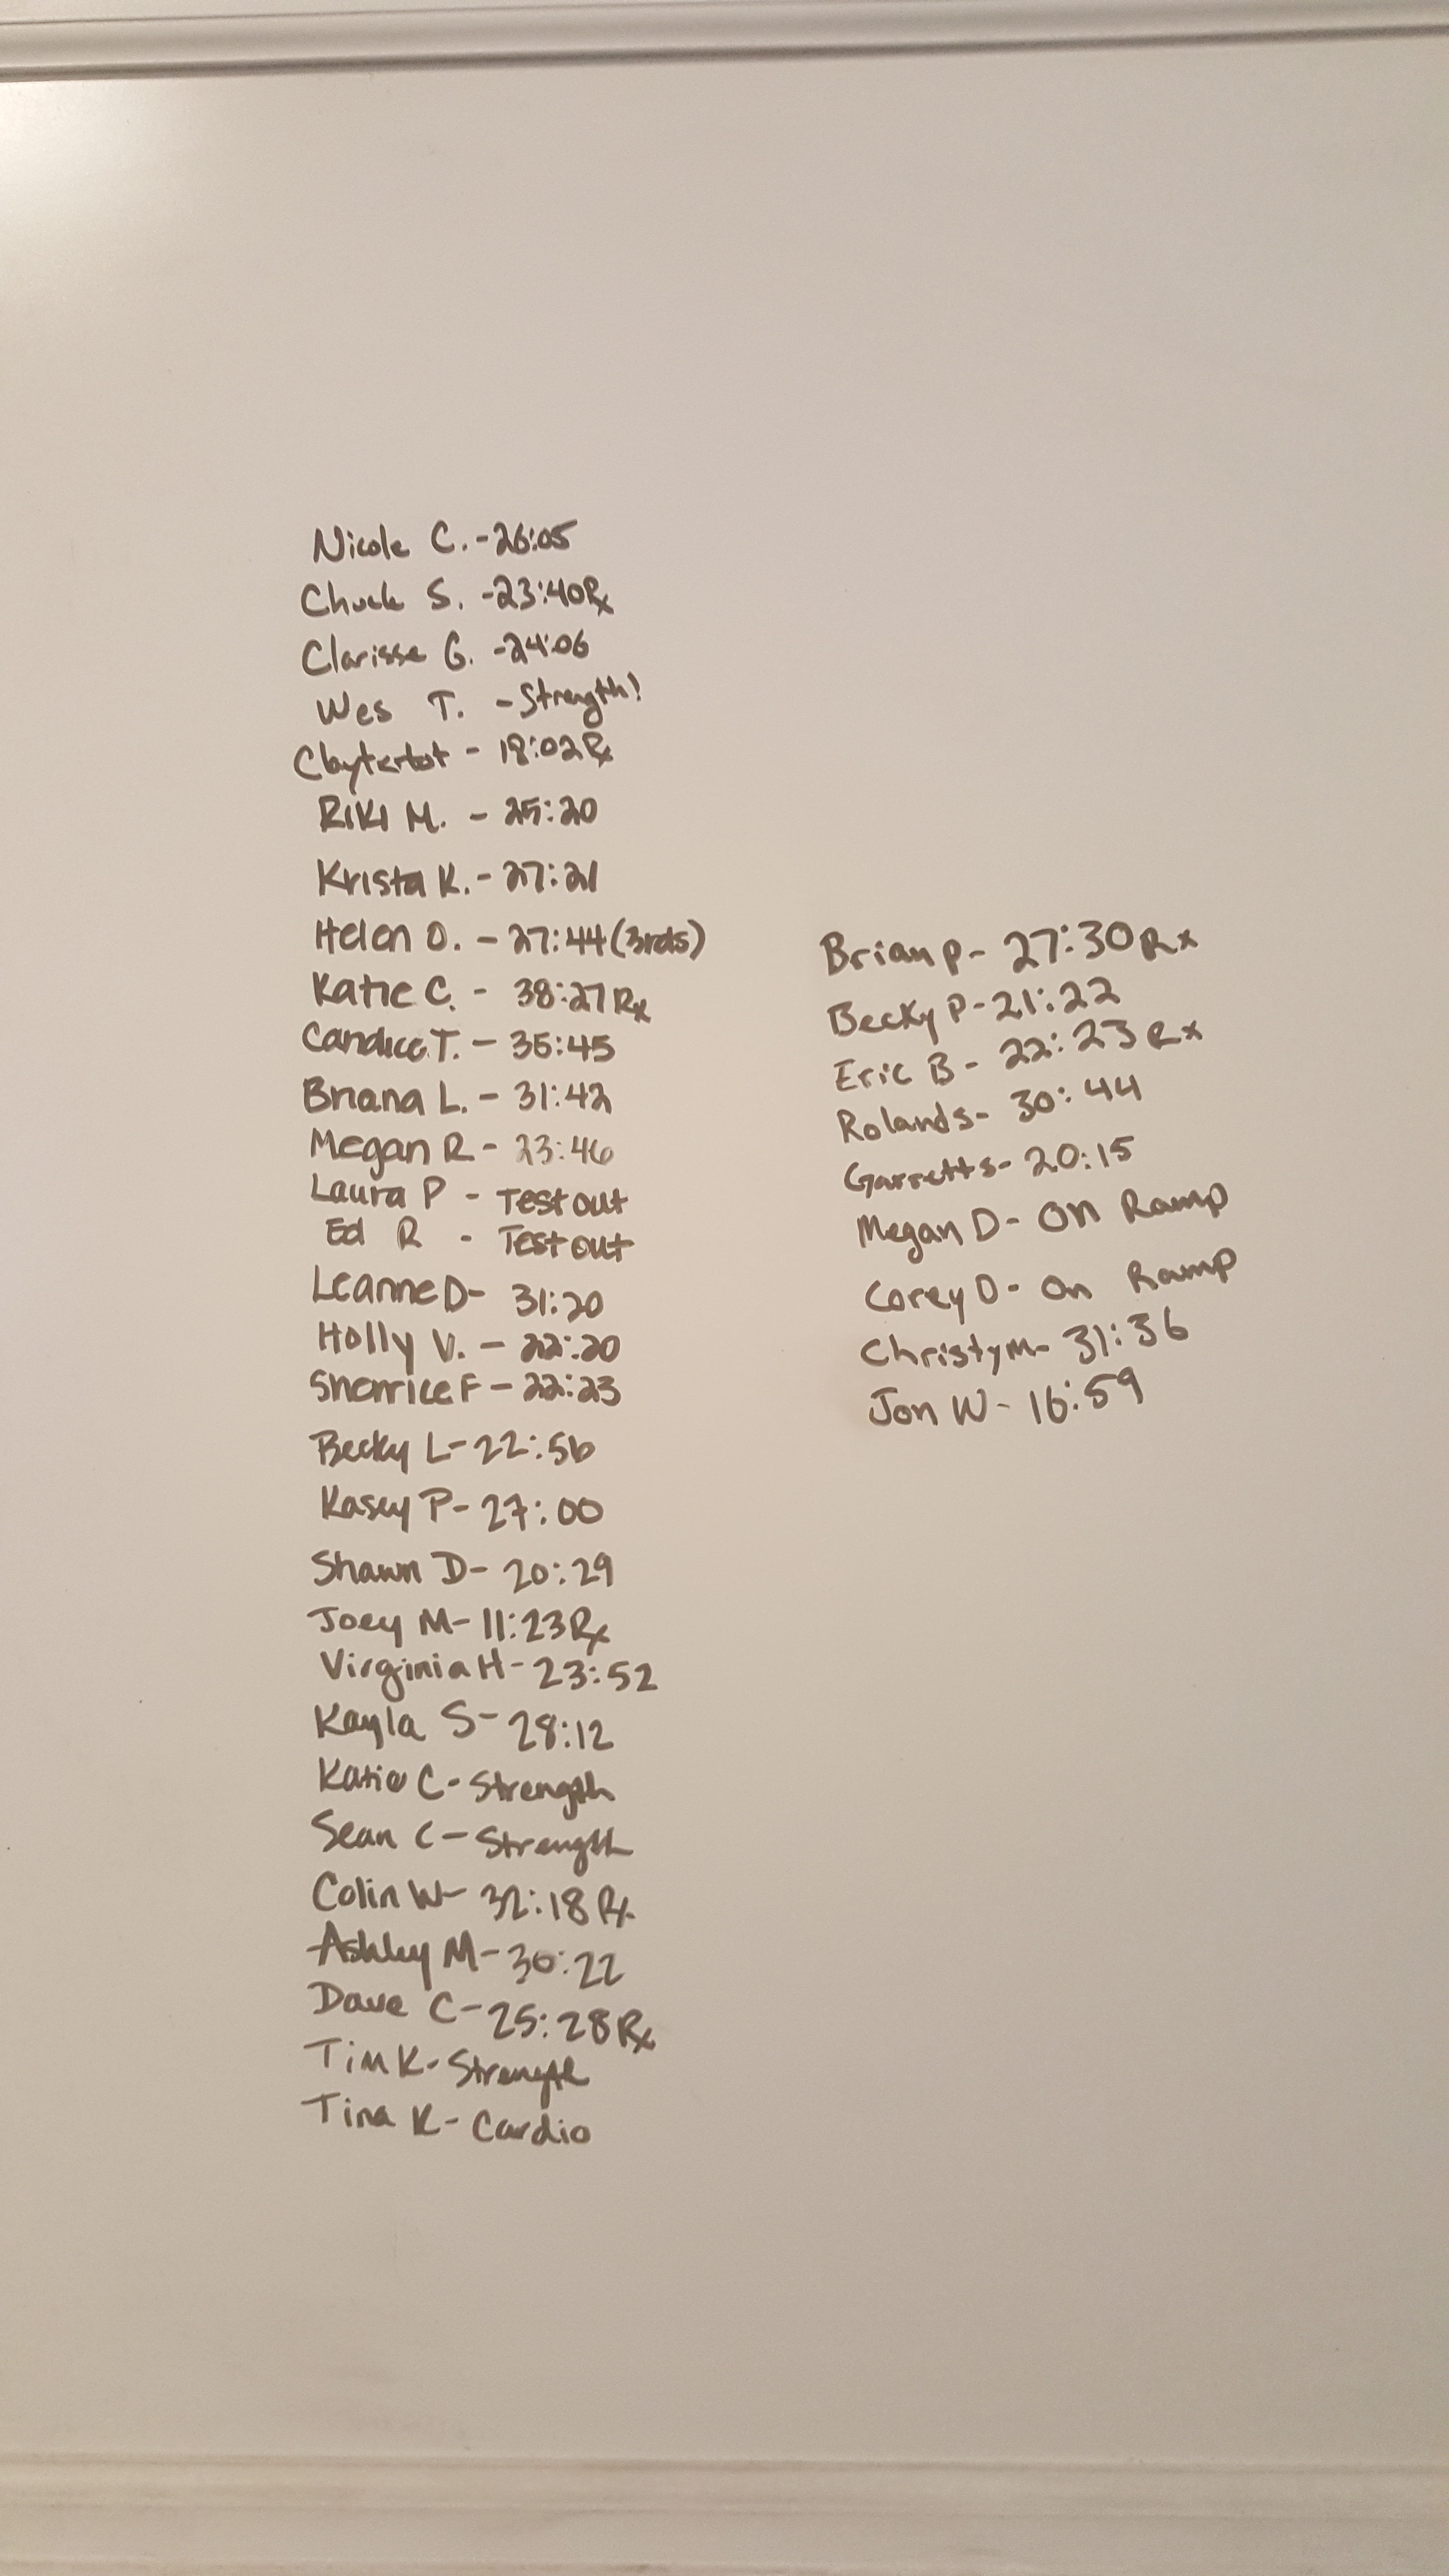 Nicole C. - 26:05
Chuck S. - 23:40 Rx
Clarisse G. - 24:06
Wes T. - Strength!
Claytertot - 18:02 Rx
Riki M. - 25:20
Krista K. - 27:21
Helen O. - 27:44 (3rds)
Katie C. - 38:27 Rx
Candice T. - 35:45
Briana L. - 31:42
Megan R - 23:46
Laura P - Test out
Ed R - Test out
Leanne D - 31:20
Holly V. - 22:20
Sherrice F - 22:23
Becky L - 22:56
Kasey P - 27:00
Shawn D - 20:29
Joey M - 11:23 Rx
Virginia H - 23:52
Kayla S - 28:12
Katie C - Strength
Sean C - Strength
Colin W - 32:18 Rx
Ashley M - 30:22
Dave C - 25:28 Rx
Tim K - Strength
Tina K - Cardio
Brian P - 27:30 Rx
Becky P - 21:22
Eric B - 22:23 Rx
Roland S - 30:44
Garrett S - 20:15
Megan D - On Ramp
Corey D - On Ramp
Christy M - 31:36
Jon W - 16:59